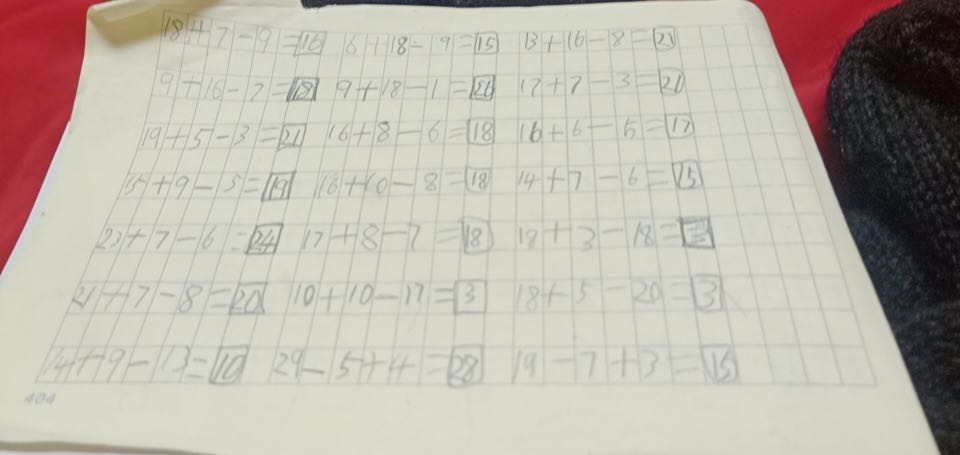 18+7-9=16 6+18-9=15 13+16-8=21
9+16-7=18 9+18-1=26 17+7-3=21
19+5-3=21 16+8-6=18 16+6-5=17
15+9-5=19 16+10-8=18 14+7-6=15
23+7-6=24 17+8-7=18 18+3-18=3
21+7-8=20 10+10-17=3 18+5-20=3
14+9-13=10 29-5+4=28 19-7+3=15
404